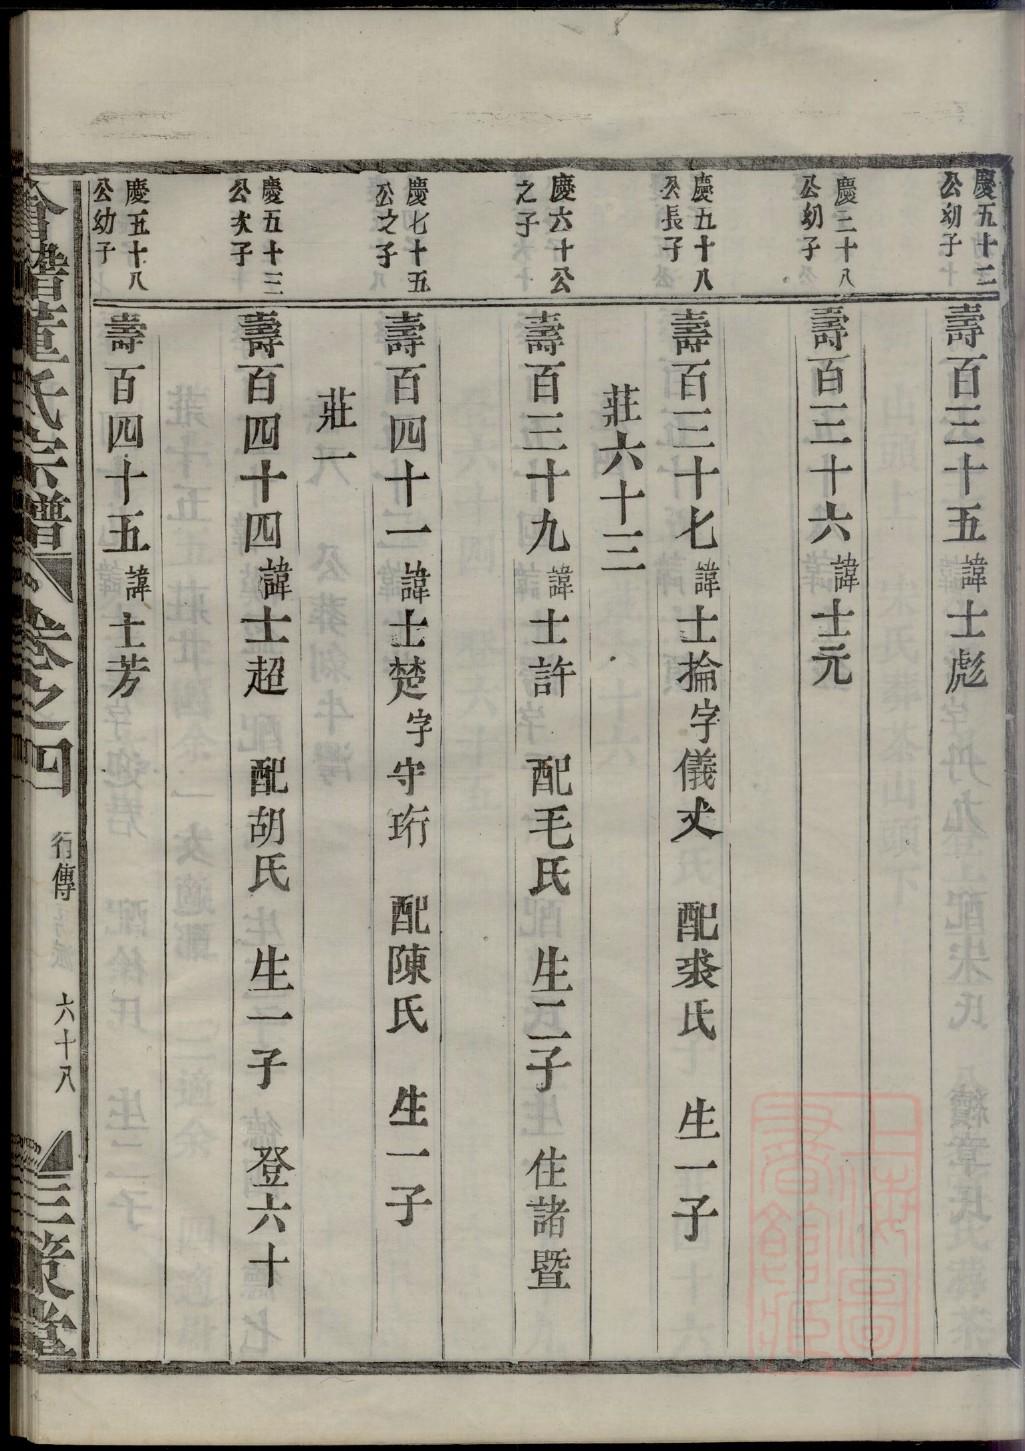 慶五十二
公幼子
壽百三十五諱士彪
慶三十八
公幼子
壽百三十六諱士元
慶五十八
公長子
壽百三十七諱士掄字儀文 配裘氏 生一子
莊六十三
慶六十公
之子
壽百三十九諱士許 配毛氏 生二子 住諸暨
慶七十五
公之子
壽百四十一諱士楚字守珩 配陳氏 生一子
莊一
慶五十三
公次子
壽百四十四諱士超 配胡氏 生一子 登六十
慶五十八
公幼子
壽百四十五諱士芳
會稽董氏宗譜 卷之四 行傳 六十八 三策堂